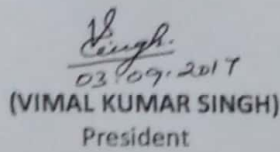 Singh.
03.09.2017
(VIMAL KUMAR SINGH)
President